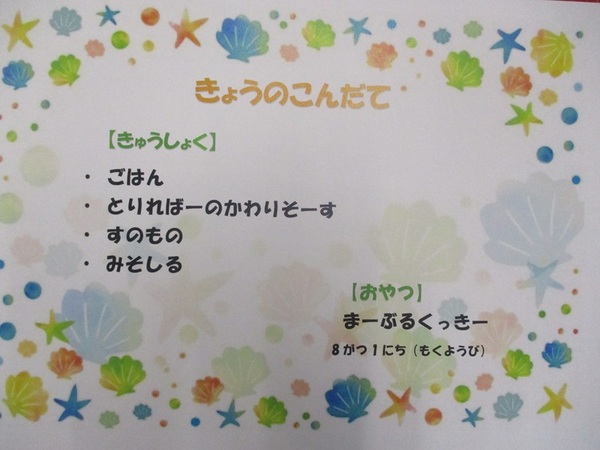 きょうのこんだて
【きゅうしょく】
・ ごはん
・ とりればーのかわりそーす
・ すのもの
・ みそしる
【おやつ】
まーぶるくっきー
8がつ1にち（もくようび）